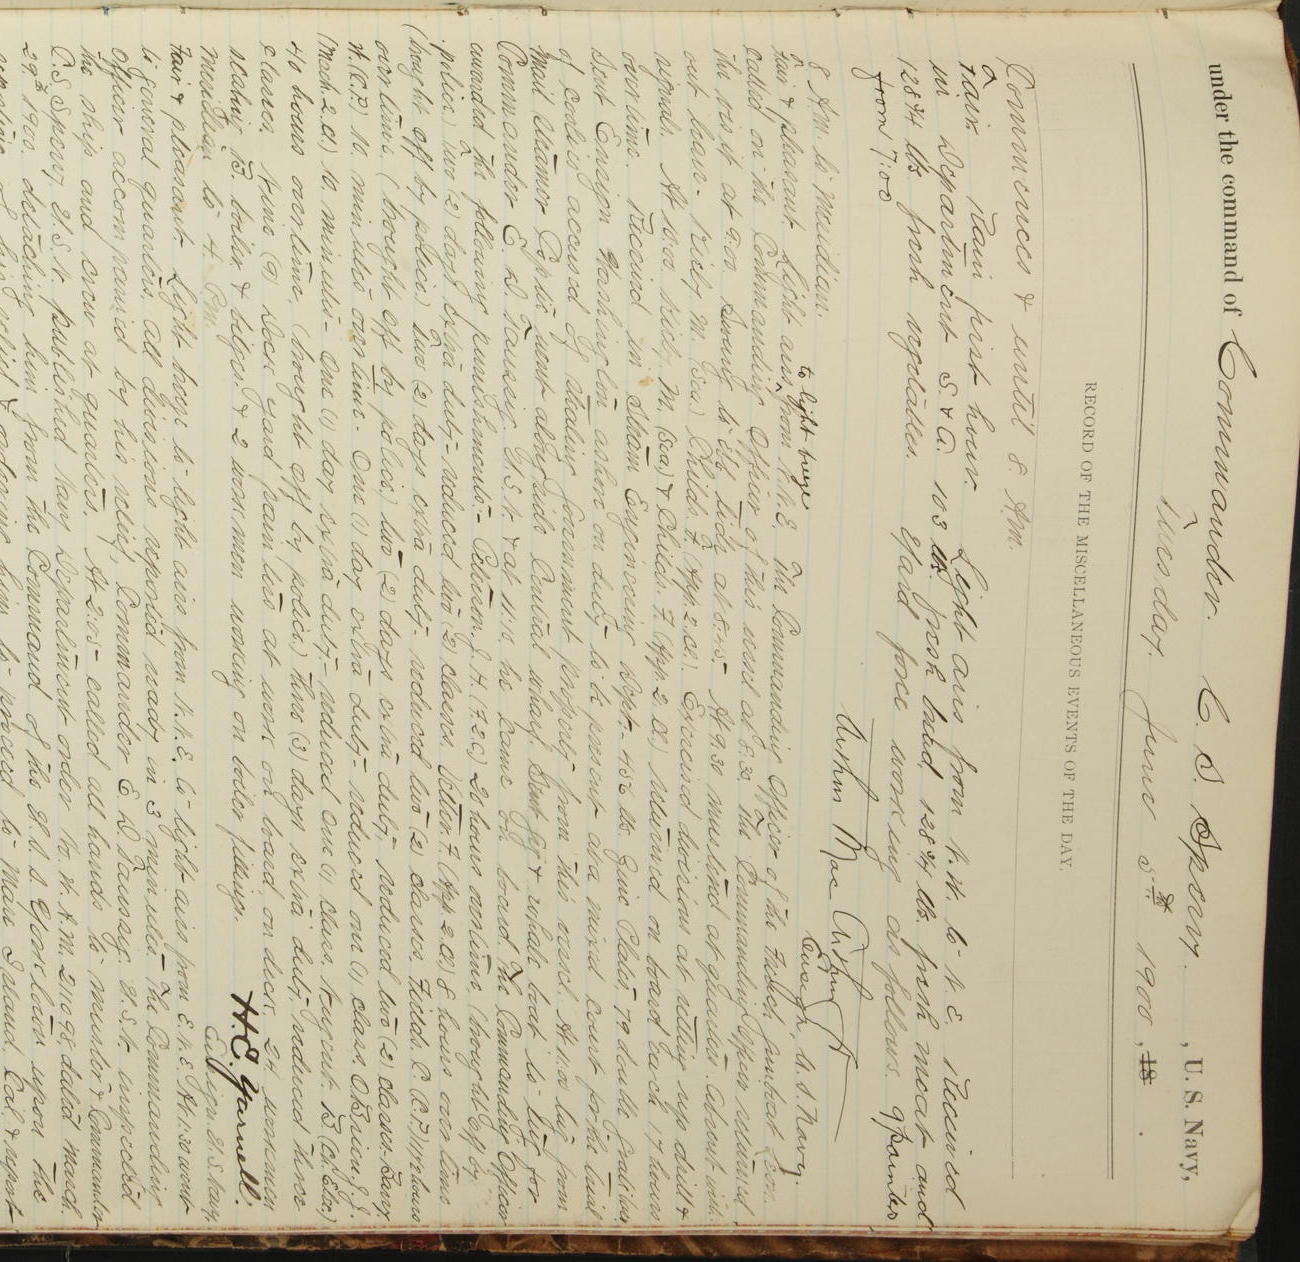 under the command of Commander C. S. Sperry. , U. S. Navy,
Tuesday. June 5th 1900, 18 .
RECORD OF THE MISCELLANEOUS EVENTS OF THE DAY.
Commences & until 8. Am.
Fair. Rain first hour. Light airs from N. W. to N. E. Received
in Department S & A. 103 lbs fresh bread, 128¾ lbs. fresh meat and
128¾ lbs fresh vegetables. Yard force working as follows. 9 painters
from 7.00
Arthur MacArthur Jr
Ensign, U. S. Navy.
8 Am. to Meridian.
Fair & pleasant. Light airs to light breeze from N.N.E. The Commanding Officer of the French gunboat
called on the Commanding Officer of this vessel at 8.30. The Commanding Officer returned
the visit at 9.00. Swung to ebb tide at 8.55. At 9.30 mustered at quarters. Absent with-
out leave - Kiely M. (Sea) Childs. F. (App 2. Cl.). Exercised divisions at setting up drill &
signals. At 10.00 Kiely, M. (Sea) & Childs. F. (App. 2. Cl.) returned on board each 17 hours
over time. Received in Steam Engineering Dept.- 456 lbs Zinc Plates, 79 double
Sent Ensign Washington ashore on duty to be present at a mixed court for the trial
of coolies accused of stealing Government property from this vessel. At 11.00 tug from
Mail steamer Coptic went alongside Central wharf. Sent gig & whale boat to tug for
Commander E. D. Taussig U. S. N. & at 11.10 he came on board. The Commanding Officer
awarded the following punishments:- Coleman, J. H. (F. 2 C) 20 hours overtime (brought off by
police) two (2) days extra duty - reduced two (2) classes. F. (App 2 Cl) 8 hours over time
(brought off by police) two (2) days extra duty - reduced two (2) classes. C. (C.P.) 11½ hours
overtime. (brought off by police) two (2) days extra duty, reduced two (2) classes.
10 minutes overtime. One (1) day extra duty - reduced one (1) class. O'Brien, J. J.
(Mach. 2 Cl) 10 minutes - One (1) day extra duty - reduced one (1) class. Nugent. B. (Ch. Ele.)
40 hours overtime, (brought off by police) three (3) days extra duty, reduced three
classes. Nine (9) Dock yard painters at work on board on deck, 24 workmen
scaling B. boiler & bilges & 2 workmen working on boiler fittings.
H. E. Yarnell.
Ensign. U. S. Navy.
Meridian to 4. Pm.
Fair & pleasant. Light breeze to light airs from N. N. E. to light airs from E. N. E. At 1.30 went
to general quarters, all divisions reported ready in 3 minutes. The Commanding
Officer accompanied by his relief, Commander E. D. Taussig. U. S. N. inspected
the ship and crew at quarters. At 2.05 - called all hands to muster & Commander
C. S. Sperry, U. S. N. published Navy Department order No. N. A. M. 211098, dated March
29th 1900. detaching him from the Command of the U. S. S. Yorktown upon the
reporting of his relief & ordering him to proceed to Mare Island. Cal. & report